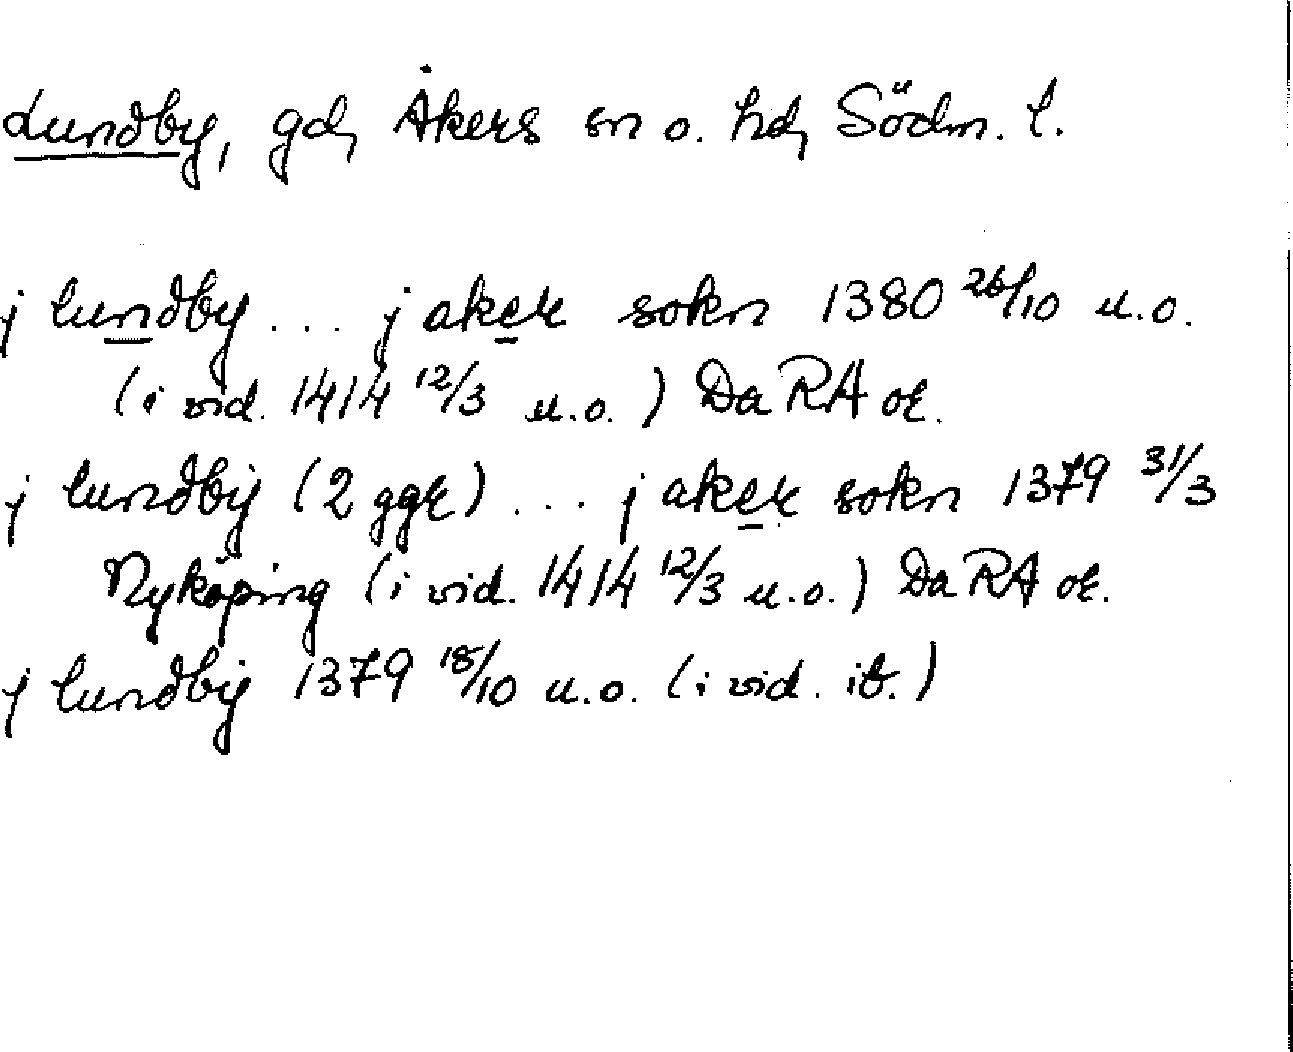 Lundby, gd, Åkers sn o. hd, Södm. l.
j lundby ... j aker sokn 1380 26/10 u.o.
(i vid. 1414 12/3 u.o.) Da RA or.
j lundbÿ (2 ggr) ... j aker sokn 1379 31/3
Nyköping (i vid. 1414 12/3 u.o.) Da RA or.
j lundbÿ 1379 18/10 u.o. (i vid. ib.)